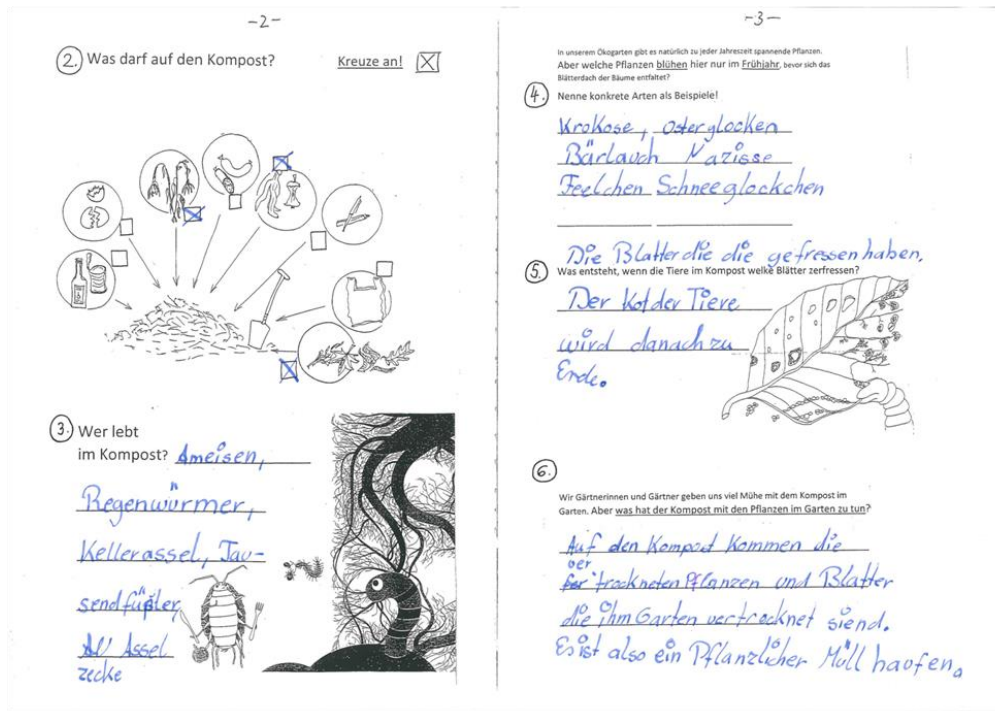 -2-
2. Was darf auf den Kompost? Kreuze an!
3. Wer lebt
im Kompost? Ameisen,
Regenwürmer,
Kellerassel, Tau-
sendfüßler,
Assel
zecke
-3-
In unserem Ökogarten gibt es natürlich zu jeder Jahreszeit spannende Pflanzen.
Aber welche Pflanzen blühen hier nur im Frühjahr, bevor sich das
Blätterdach der Bäume entfaltet?
4. Nenne konkrete Arten als Beispiele!
Krokose, Osterglocken
Bärlauch Nazisse
Feelchen Schneeglockchen
Die Blatter die die gefressen haben.
5. Was entsteht, wenn die Tiere im Kompost welke Blätter zerfressen?
Der Kot der Tiere
wird danach zu
Erde.
6.
Wir Gärtnerinnen und Gärtner geben uns viel Mühe mit dem Kompost im
Garten. Aber was hat der Kompost mit den Pflanzen im Garten zu tun?
Auf den Kompost kommen die
ver trockneten Pflanzen und Blatter
die ihm Garten vertrocknet siend.
Es ist also ein Pflanzlicher Müll haufen.